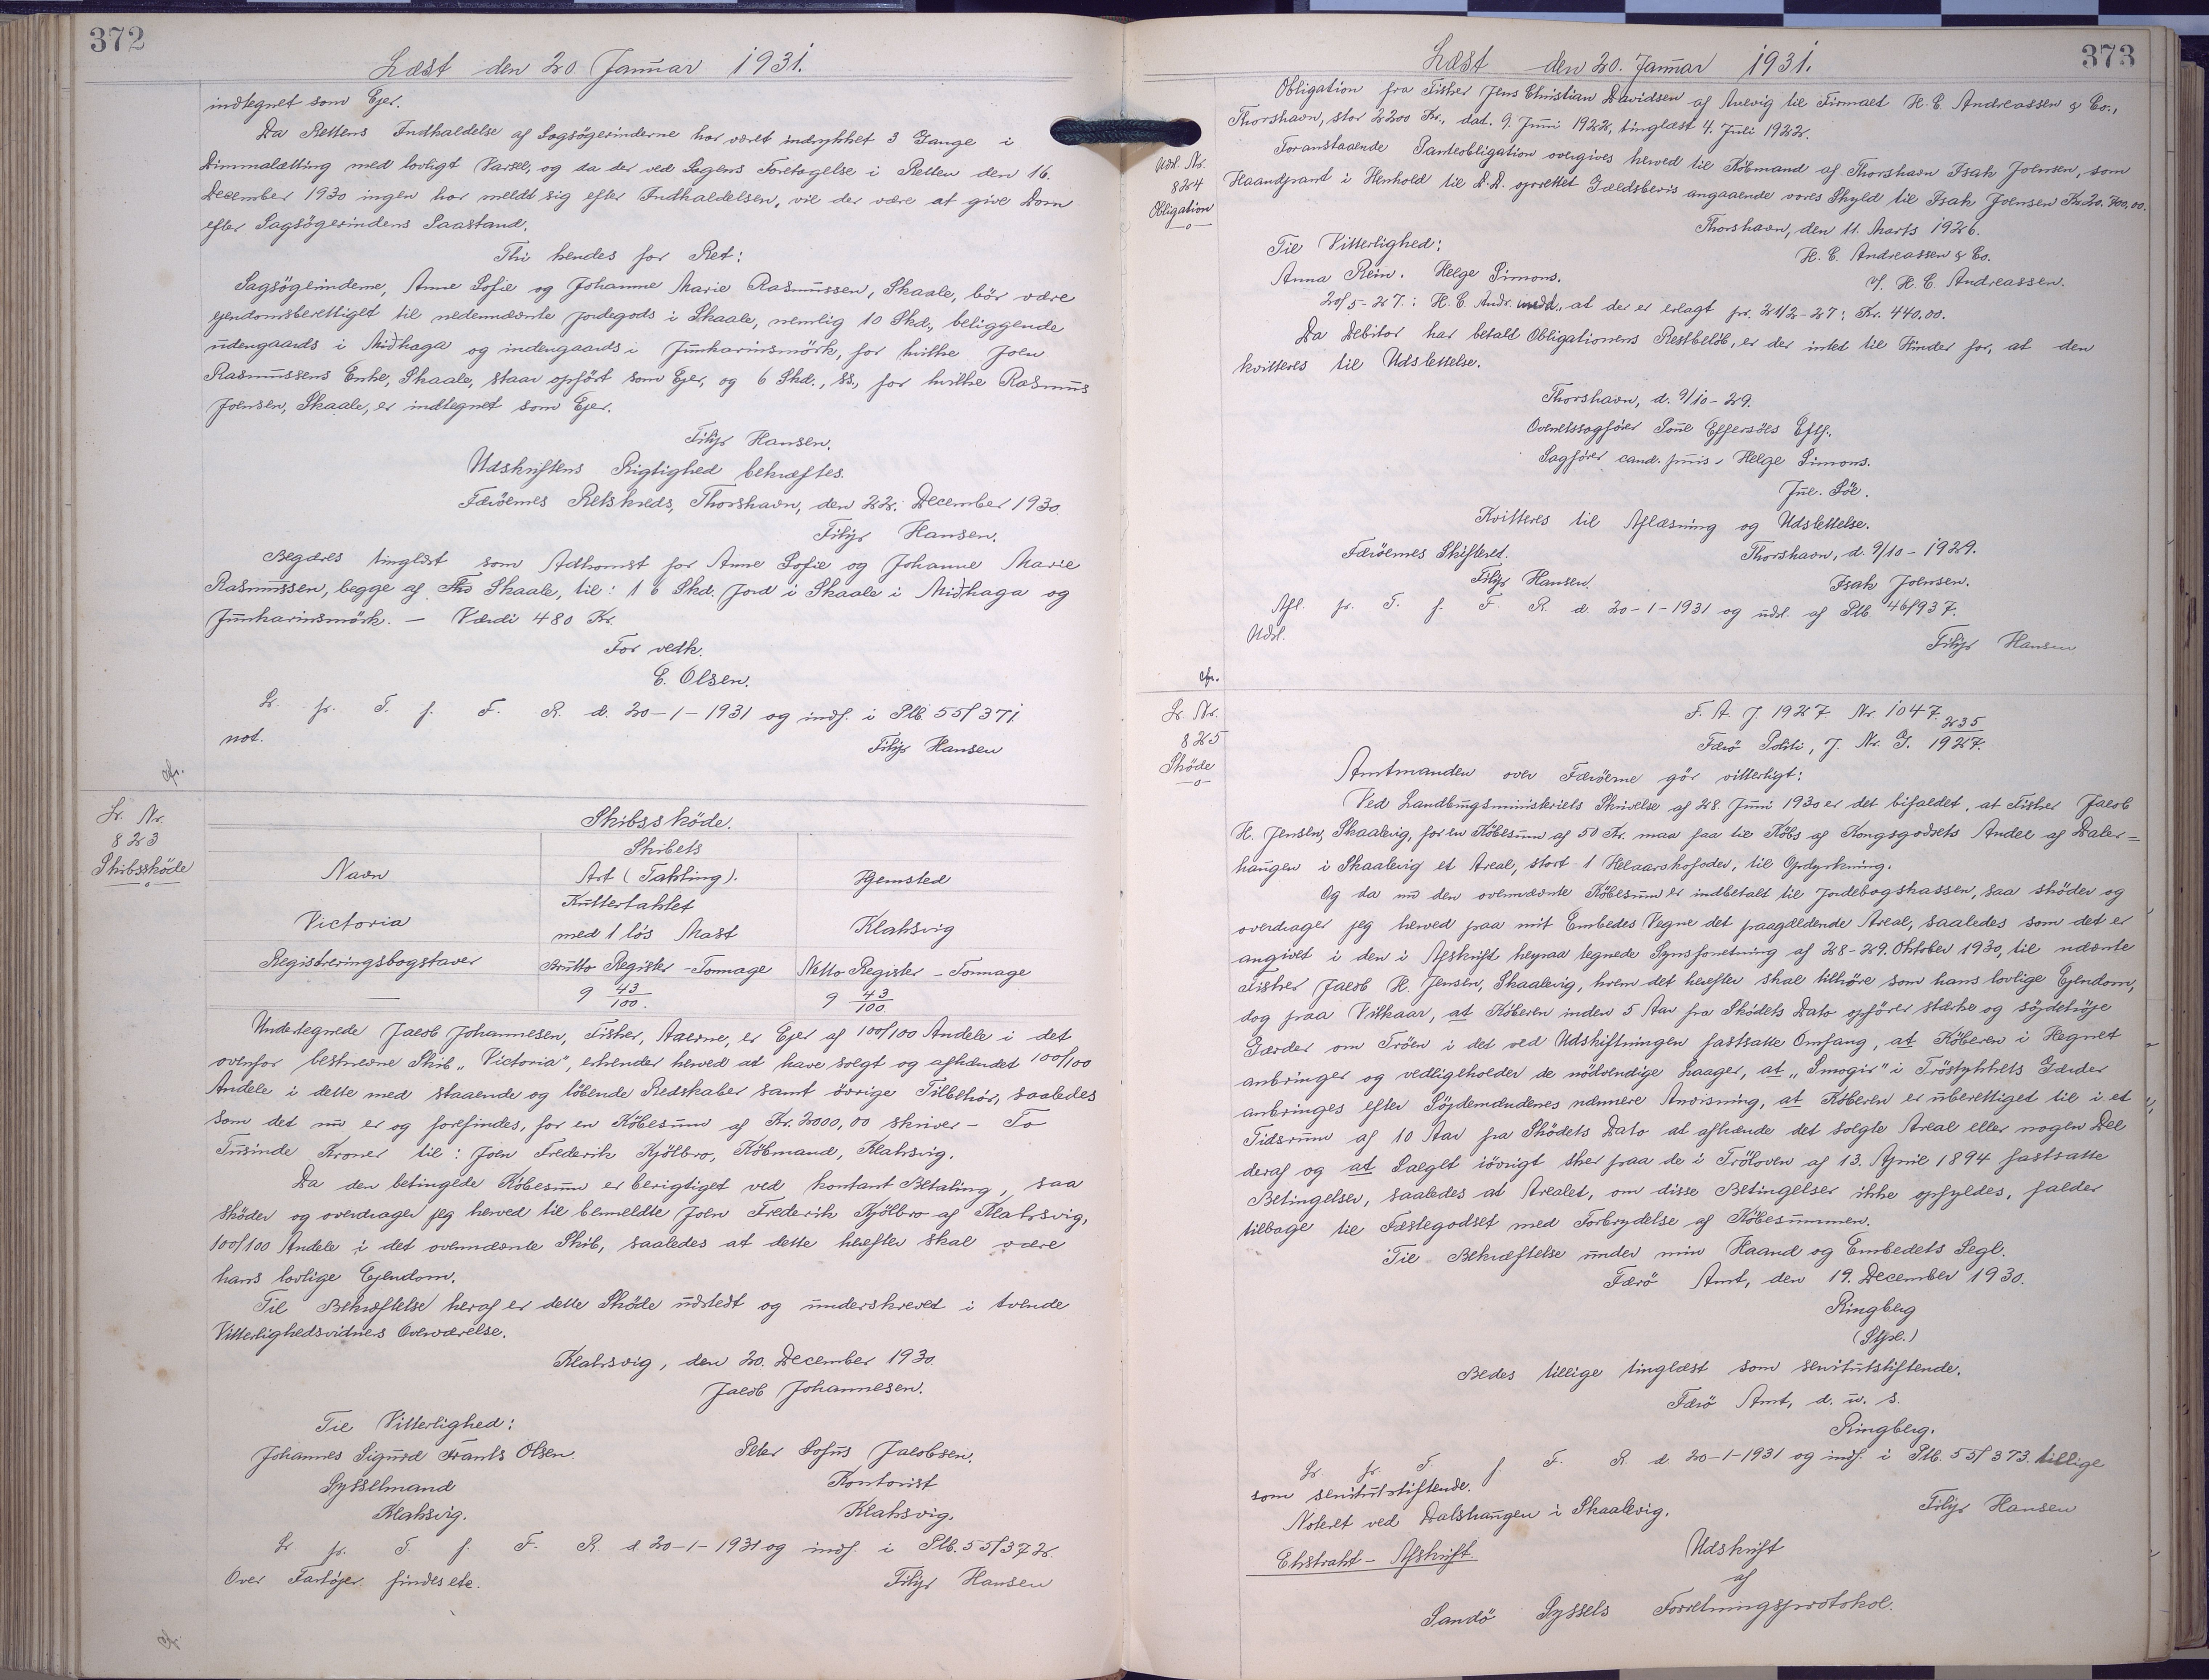 372
Læst den 20. Januar 1931.
indtegnet som Ejer.
Da Rettens Indkaldelse af Sagsögerinderne har været indrykket 3 Gange i
Dimmalætting med lovligt Varsel, og da der ved Sagens Foretagelse i Retten den 16.
December 1930 ingen har meldt sig efter Indkaldelsen, vil der være at give Dom
efter Sagsögerindens Paastand.
Thi kendes for Ret:
Sagsögerinderne, Anne Sofie og Johanne Marie Rasmussen, Skaale, bör være
ejendomsberettiget til nedennævnte Jordegods i Skaale, nemlig 10 Skd., beliggende
udengaards i Miðhaga og indengaards i Junkarinsmörk, for hvilke Joen
Rasmussens Enke, Skaale, staar opfört som Ejer, og 6 Skd., ss., for hvilke Rasmus
Joensen, Skaale, er indtegnet som Ejer.
Filip Hansen.
Udskriftens Rigtighed bekræftes.
Færöernes Retskreds, Thorshavn, den 22. December 1930.
Filip Hansen.
Begæres tinglæst som Adkomst for Anne Sofie og Johanne Marie
Rasmussen, begge af Skaale, til: 16 Skd. Jord i Skaale i Miðhaga og
Junkarinsmörk. — Værdi 480 Kr.
For vedk.
E. Olsen.
L. p. T. f. F. R. d. 20-1-1931 og indf. i Plb 55/371
not.
Filip Hansen
cfr.
Lr. Nr.
823
Skibsskøde
Skibsskøde.
Skibets
Navn
Art (Takling).
Hjemsted
Victoria
Kuttertaklet
med 1 løs Mast
Klaksvig
Registreringsbogstaver
Brutto Register-Tonnage
Netto Register-Tonnage
—
9 43/100.
9 43/100
Undertegnede Jacob Johannesen, Fisker, Aaerne, er Ejer af 100/100 Andele i det
ovenfor beskrevne Skib „Victoria", erkender herved at have solgt og afhændet 100/100
Andele i dette med staaende og löbende Redskaber samt övrige Tilbehör, saaledes
som det nu er og forefindes, for en Köbesum af Kr. 2000,00 skriver - To
Tusinde Kroner til: Joen Frederik Kjölbro, Köbmand, Klaksvig.
Da den betingede Köbesum er berigtiget ved kontant Betaling, saa
sköder og overdrager jeg herved til bemeldte Joen Frederik Kjölbro af Klaksvig,
100/100 Andele i det ovennævnte Skib, saaledes at dette herefter skal være
hans lovlige Ejendom.
Til Bekræftelse heraf er dette Sköde udstedt og underskrevet i tvende
Vitterlighedsvidners Overværelse.
Klaksvig, den 20. December 1930.
Jacob Johannesen.
Til Vitterlighed:
Johannes Sigurd Frants Olsen.
Peter Sofus Jacobsen.
Sysselmand
Kontorist
Klaksvig.
Klaksvig.
L. p. T. f. F. R. d. 20-1-1931 og indf. i Plb. 55/372.
Over Fartöjer findes etc.
Filip Hansen
cf.
373
Læst den 20. Januar 1931.
Udsl. Nr.
824
Obligation
Obligation fra Fisker Jens Christian Davidsen af Avevig til Firmaet H. C. Andreassen & Co.,
Thorshavn, stor 2200 Kr., dat. 9. Juni 1922, tinglæst 4. Juli 1922.
Foranstaaende Panteobligation overgives herved til Köbmand af Thorshavn Isak Joensen, som
Haandpant i Henhold til D.D. oprettet Gældsbevis angaaende vores Skyld til Isak Joensen Kr. 20.700,00.
Thorshavn, den 11. Marts 1926.
Til Vitterlighed:
H. C. Andreassen & Co.
Anna Rein. Helge Simons.
v/. H. C. Andreassen.
20/5-27.: H. C. Andr. medd., at der er erlagt pr. 21/2-27: Kr. 440,00.
Da Debitor har betalt Obligationens Restbelöb, er der intet til Hinder for, at den
kvitteres til Udslettelse.
Thorshavn, d. 9/10-29.
Overretssagförer Poul Effersöes Eftf.
Sagförer cand. juris Helge Simons.
Jul. Söe.
Kvitteres til Aflæsning og Udslettelse.
Færöernes Skifteret.
Thorshavn, d. 9/10-1929.
Filip Hansen.
Isak Joensen.
Afl. p. T. f. F. R. d. 20-1-1931 og udsl. af Plb 46/937.
Udsl.
Filip Hansen
cfr.
Lr Nr.
825
Sköde
F. A. J. 1927 Nr. 1047.
Færö Politi, J. Nr. G. 235/1927.
Amtmanden over Færöerne gör vitterligt:
Ved Landbrugsministeriets Skrivelse af 28. Juni 1930 er det bifaldet, at Fisker Jacob
H. Jensen, Skaalevig, for en Köbesum af 50 Kr. maa faa til Köbs af Kongsgodsets Andel af Daler=
haugen i Skaalevig et Areal, stort 1 Helaarskofoder, til Opdyrkning.
Og da nu den ovennævnte Köbesum er indbetalt til Jordebogskassen, saa sköder og
overdrager jeg herved paa mit Embedes Vegne det paagældende Areal, saaledes som det er
angivet i den i Afskrift herpaa tegnede Synsforretning af 28-29. Oktober 1930, til nævnte
Fisker Jacob H. Jensen, Skaalevig, hvem det herefter skal tilhöre som hans lovlige Ejendom,
dog paa Vilkaar, at Köberen inden 5 Aar fra Sködets Dato opförer stærke og söjdetröje
Gærder om Tröen i det ved Udskiftningen fastsatte Omfang, at Köberen i Hegnet
anbringer og vedligeholder de nödvendige Laager, at „Smogir" i Tröstykkets Gærder
anbringes efter Söjdemændenes nærmere Anvisning, at Köberen er uberettiget til i et
Tidsrum af 10 Aar fra Sködets Dato at afhænde det solgte Areal eller nogen Del
deraf og at Salget iövrigt sker paa de i Tröloven af 13. April 1894 fastsatte
Betingelser, saaledes at Arealet, om disse Betingelser ikke opfyldes, falder
tilbage til Fæstegodset med Forbrydelse af Köbesummen.
Til Bekræftelse under min Haand og Embedets Segl.
Færö Amt, den 19. December 1930.
Ringberg
(Stpl.)
Bedes tillige tinglæst som servitutstiftende.
Færö Amt, d. u. s.
Ringberg.
L. p. T. f. F. R. d. 20-1-1931 og indf. i Plb. 55/373. tillige
som servitutstiftende.
Noteret ved Dalshaugen i Skaalevig.
Filip Hansen
Ekstrakt-Afskrift.
Udskrift
af
Sandö Syssels Forretningsprotokol.